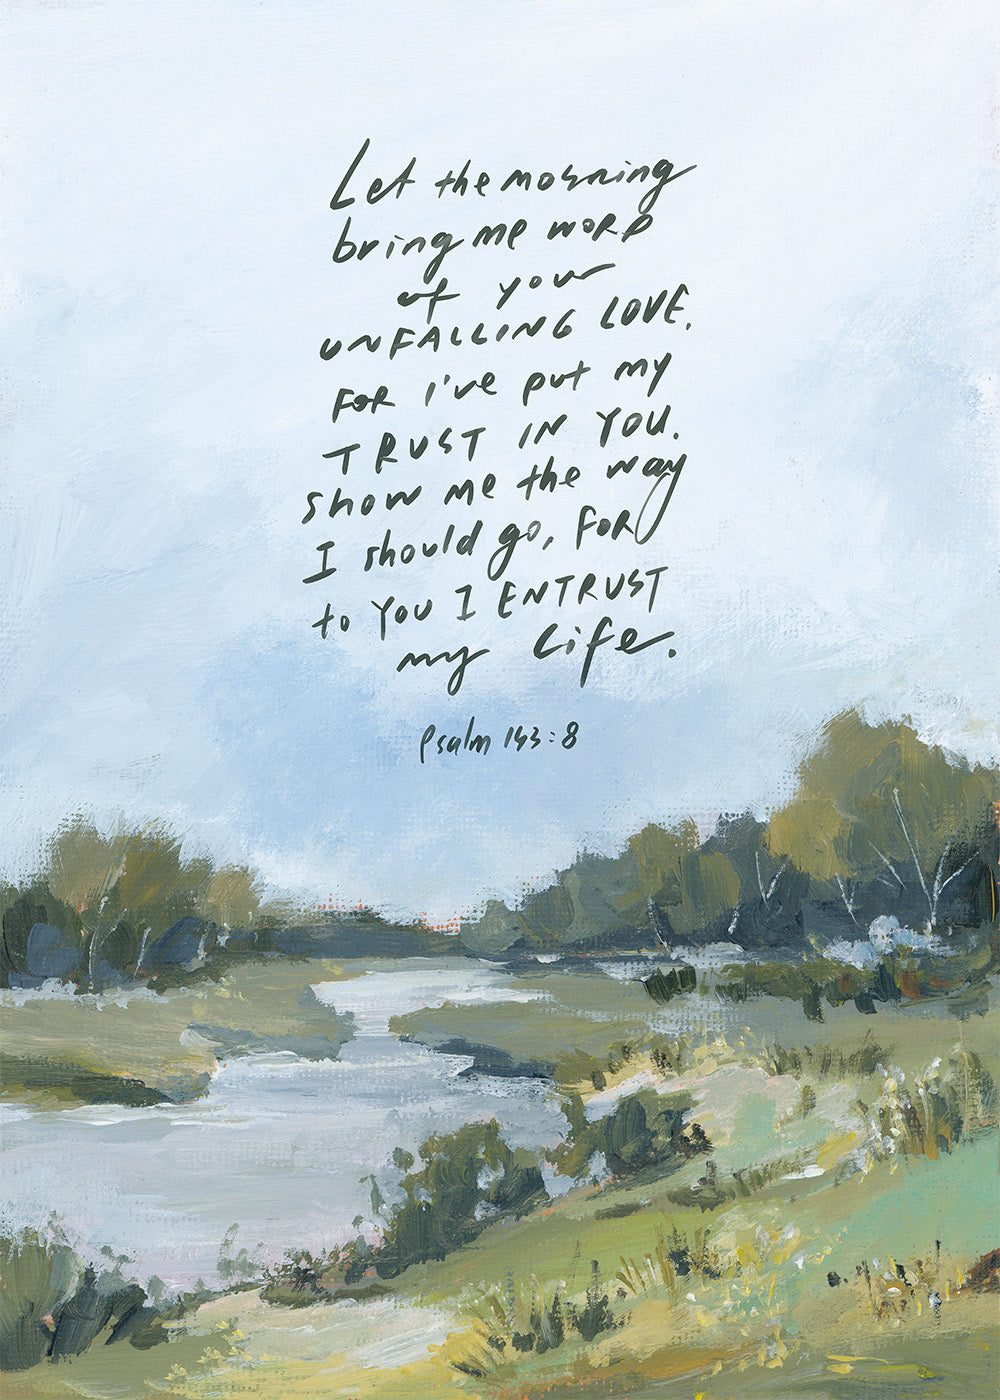 Let the morning
bring me word
of your
UNFALLING LOVE,
FOR I've put my
TRUST IN YOU.
Show me the way
I should go, FOR
to YOU I ENTRUST
my life.
Psalm 143:8